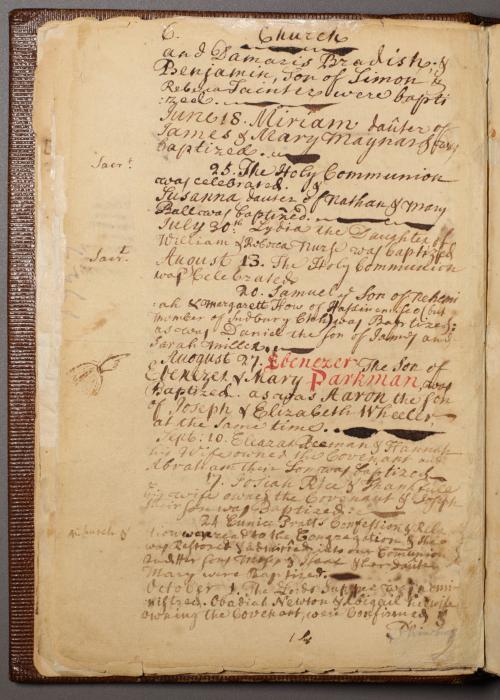 6. Church
and Damaris Bradish. &
Benjamin, Son of Simon &
Rebecca Tainter were bapti
:zed.
June 18. Miriam dauter of
James & Mary Maynard was
baptized.
Sacrt. 25. The Holy Communion
was celebrated. &
Susanna dauter of Nathan & Mary
Ball was baptized.
July 30th Lydia the Daughter of
William & Rebecca Nurse was baptized
Sacrt. August 13. The Holy Communion
was Celebrated
20. Samuel ye Son of Nehemi
:ah & Margarett How of Hassinemisco (but
member of Sudbury Chh) was Baptized:
as was Daniel the Son of James and
Sarah Miller.
August 27. Ebenezer The Son of
Ebenezer & Mary Parkman, was
Baptized. as was Aaron the Son
of Joseph & Elizabeth Wheeler
at the same time.
Sept. 10. Eleazar Beeman & Hannah
his Wife owned the Covenant and
Abraham their Son was baptized
17. Josiah Rice & Thankfull
his wife owned the Covenant & Joseph
their son was Baptized
24. Eunice Pratts Confession & Rela
tion were read to the Congregation & she
was Restored & admitted into our Communion
and Her Sons & her dauter
Mary were Baptized.
October 1. The Lords Supper was admi
nistred. Obadiah Newton & Abigail his wife
owning the Covenant, were Confirmed